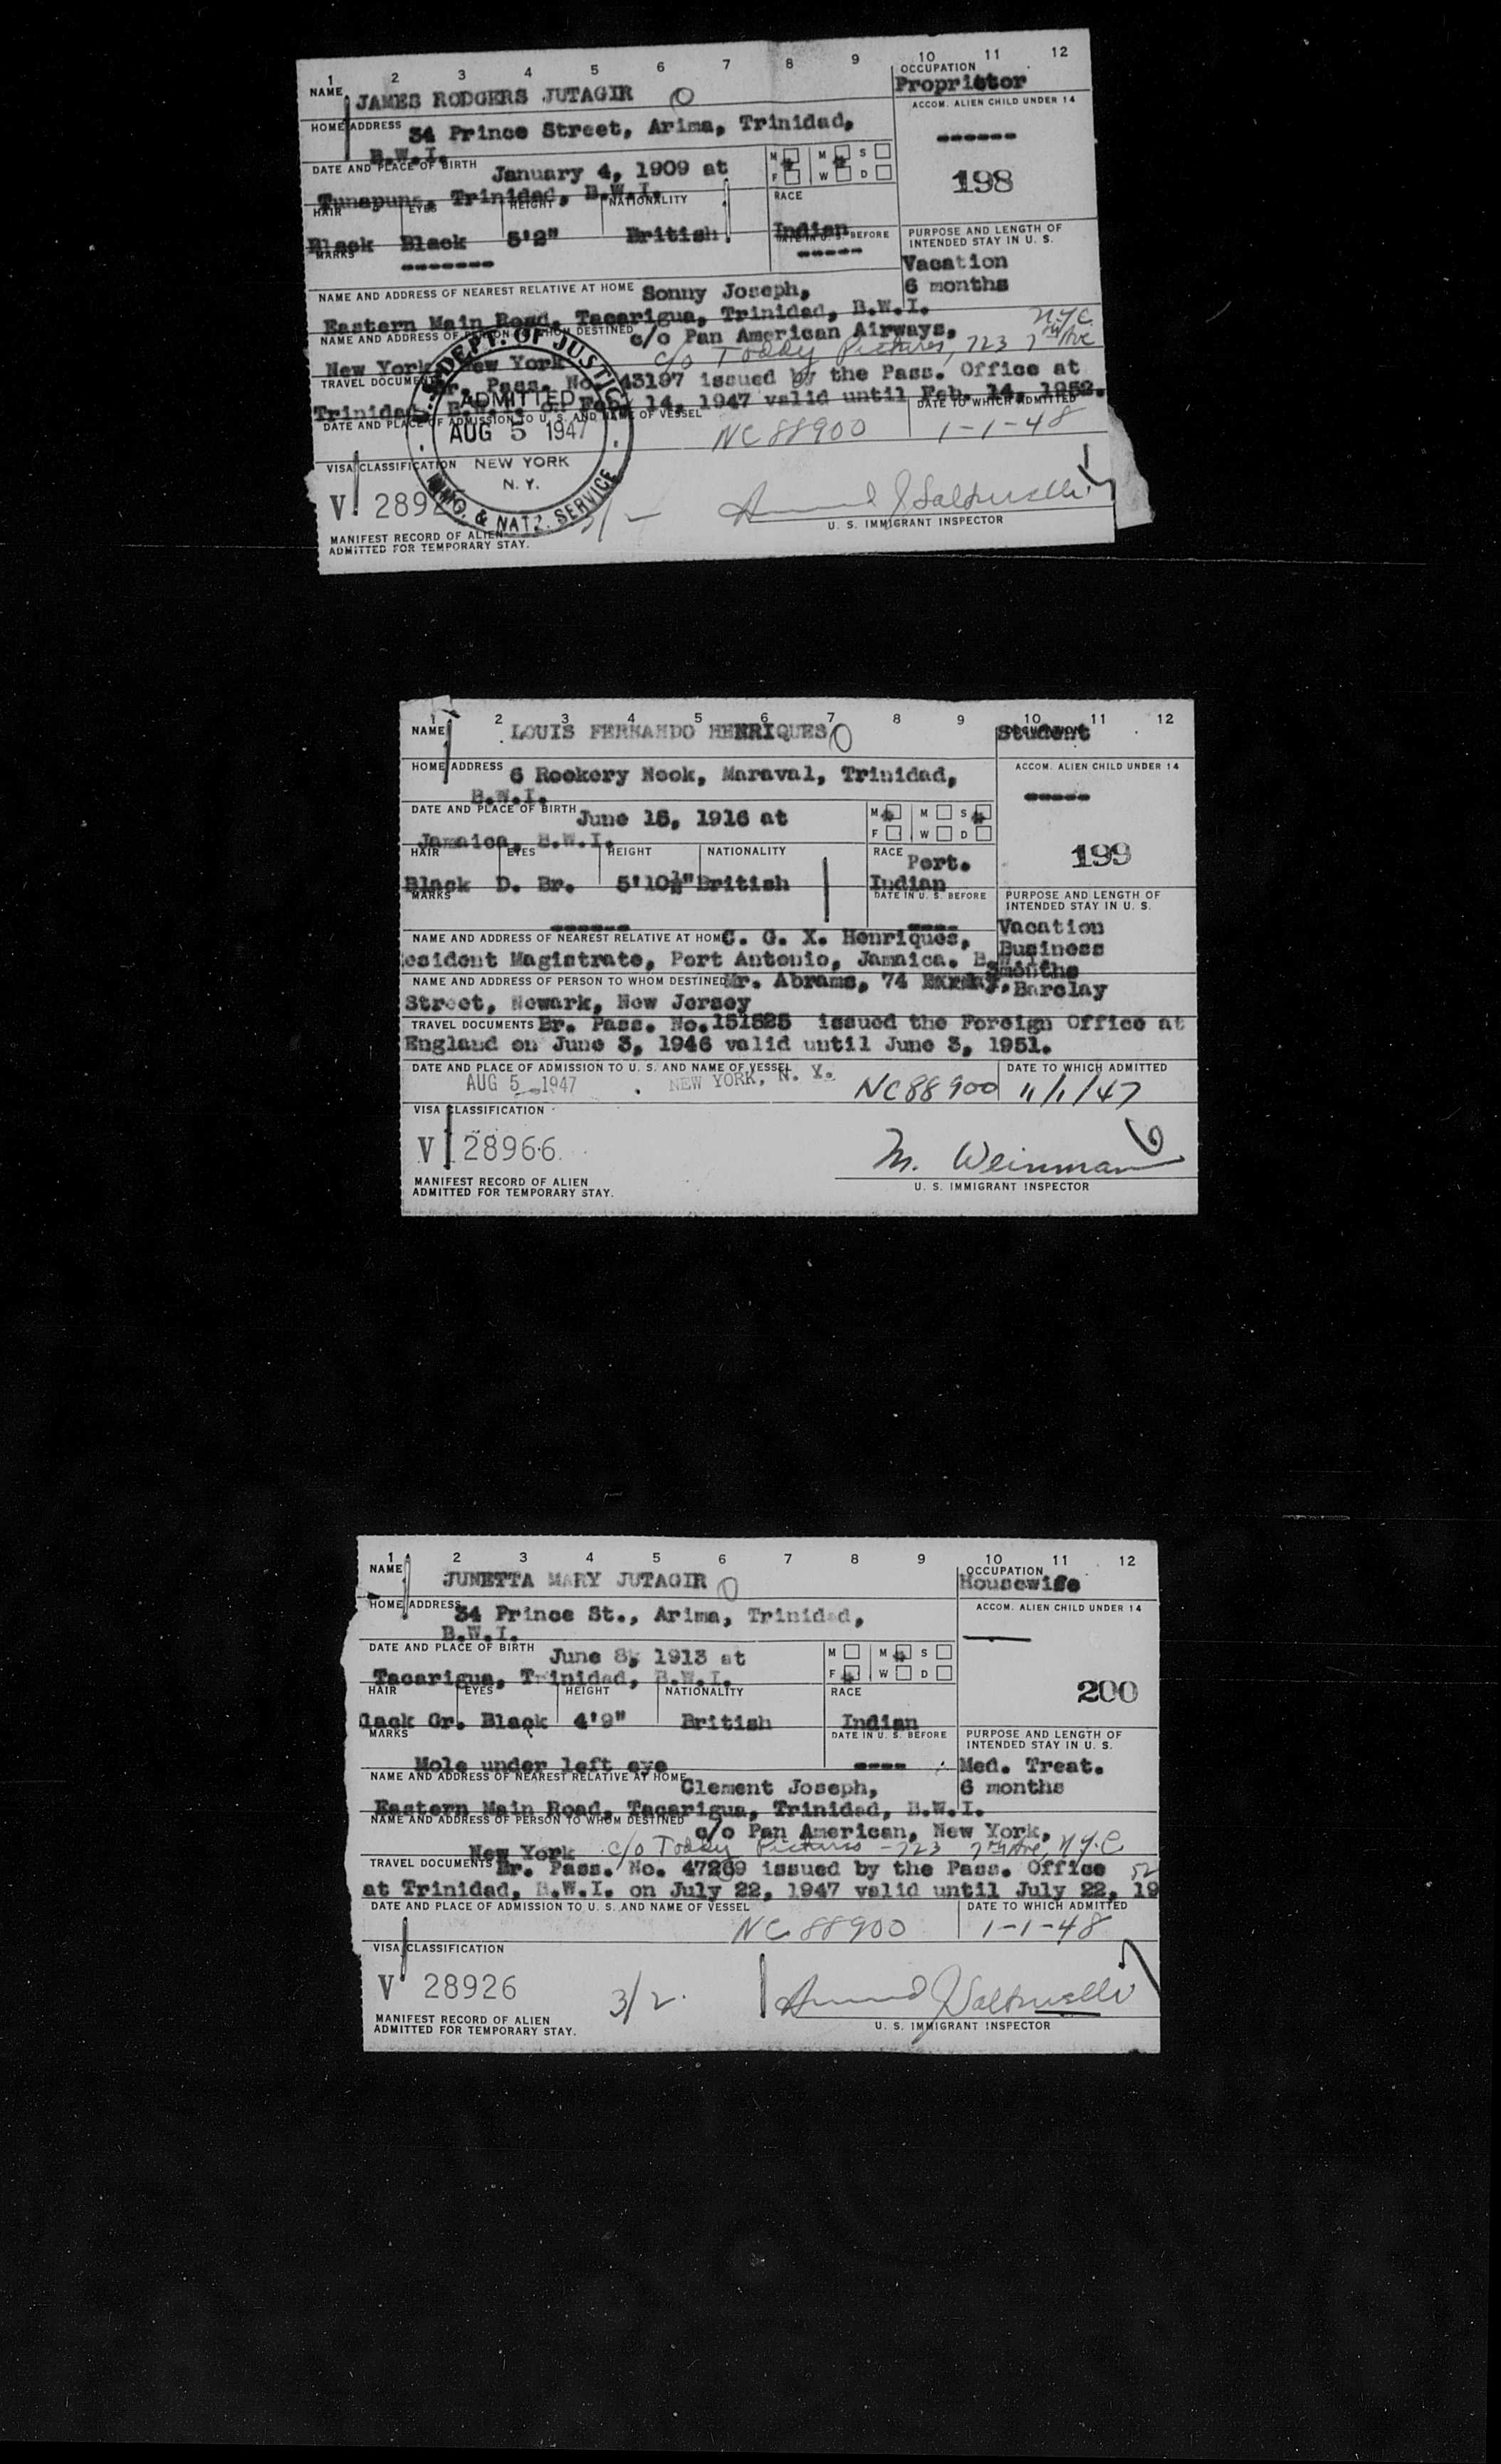 1 2 3 4 5 6 7 8 9 10 11 12
NAME JAMES RODGERS JUTAGIR O
OCCUPATION
Proprietor
HOME ADDRESS 34 Prince Street, Arima, Trinidad,
B.W.I.
ACCOM. ALIEN CHILD UNDER 14
------
DATE AND PLACE OF BIRTH January 4, 1909 at
Tunapuna, Trinidad, B.W.I.
M F M W S D
198
HAIR EYES HEIGHT NATIONALITY RACE
Black Black 5'2" British Indian
MARKS
-------
DATE IN U. S. BEFORE
-----
PURPOSE AND LENGTH OF
INTENDED STAY IN U. S.
Vacation
6 months
NAME AND ADDRESS OF NEAREST RELATIVE AT HOME Sonny Joseph,
Eastern Main Road, Tacarigua, Trinidad, B.W.I.
NAME AND ADDRESS OF PERSON TO WHOM DESTINED c/o Pan American Airways,
New York, New York c/o Today Pictures, 723 7th Ave N.Y.C.
TRAVEL DOCUMENTS Br. Pass. No. 43197 issued by the Pass. Office at
Trinidad, B.W.I. on Feb. 14, 1947 valid until Feb. 14, 1952.
DATE AND PLACE OF ADMISSION TO U. S. AND NAME OF VESSEL
NC 88900
DATE TO WHICH ADMITTED
1-1-48
U.S. DEPT. OF JUSTICE
ADMITTED
AUG 5 1947
NEW YORK
N. Y.
IMMG. & NATZ. SERVICE
VISA CLASSIFICATION
V 2892
3/2
U. S. IMMIGRANT INSPECTOR
MANIFEST RECORD OF ALIEN
ADMITTED FOR TEMPORARY STAY.
1 2 3 4 5 6 7 8 9 10 11 12
NAME LOUIS FERNANDO HENRIQUES O
Student
HOME ADDRESS 6 Rookery Nook, Maraval, Trinidad,
B.W.I.
ACCOM. ALIEN CHILD UNDER 14
-----
DATE AND PLACE OF BIRTH June 15, 1916 at
Jamaica, B.W.I.
M F M W S D
199
HAIR EYES HEIGHT NATIONALITY RACE Port.
Black D. Br. 5'10½" British Indian
MARKS
------
DATE IN U. S. BEFORE
----
PURPOSE AND LENGTH OF
INTENDED STAY IN U. S.
Vacation
Business
3months
NAME AND ADDRESS OF NEAREST RELATIVE AT HOME C. G. X. Henriques,
esident Magistrate, Port Antonio, Jamaica. B.W.I.
NAME AND ADDRESS OF PERSON TO WHOM DESTINED Mr. Abrams, 74 Barclay
Street, Newark, New Jersey
TRAVEL DOCUMENTS Br. Pass. No.151525 issued the Foreign Office at
England on June 3, 1946 valid until June 3, 1951.
DATE AND PLACE OF ADMISSION TO U. S. AND NAME OF VESSEL
AUG 5 1947 NEW YORK, N. Y. NC88900
DATE TO WHICH ADMITTED
11/1/47
VISA CLASSIFICATION
V 28966
M. Weinman
U. S. IMMIGRANT INSPECTOR
MANIFEST RECORD OF ALIEN
ADMITTED FOR TEMPORARY STAY.
1 2 3 4 5 6 7 8 9 10 11 12
NAME JUNETTA MARY JUTAGIR O
OCCUPATION
Housewife
HOME ADDRESS 34 Prince St., Arima, Trinidad,
B.W.I.
ACCOM. ALIEN CHILD UNDER 14
DATE AND PLACE OF BIRTH June 8, 1913 at
Tacarigua, Trinidad, B.W.I.
M F M W S D
200
HAIR EYES HEIGHT NATIONALITY RACE
lack Gr. Black 4'9" British Indian
MARKS
Mole under left eye
DATE IN U. S. BEFORE
----
PURPOSE AND LENGTH OF
INTENDED STAY IN U. S.
Med. Treat.
6 months
NAME AND ADDRESS OF NEAREST RELATIVE AT HOME Clement Joseph,
Eastern Main Road, Tacarigua, Trinidad, B.W.I.
NAME AND ADDRESS OF PERSON TO WHOM DESTINED c/o Pan American, New York,
New York c/o Today Pictures - 723 7th Ave, N.Y.C
TRAVEL DOCUMENTS Br. Pass. No. 47269 issued by the Pass. Office
at Trinidad, B.W.I. on July 22, 1947 valid until July 22, 19 52
DATE AND PLACE OF ADMISSION TO U. S. AND NAME OF VESSEL
NC 88900
DATE TO WHICH ADMITTED
1-1-48
VISA CLASSIFICATION
V 28926
3/2.
U. S. IMMIGRANT INSPECTOR
MANIFEST RECORD OF ALIEN
ADMITTED FOR TEMPORARY STAY.